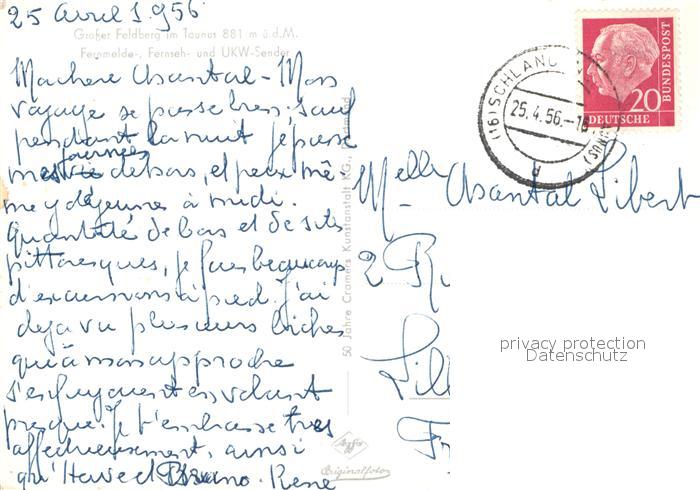 25 avril 1956
Großer Feldberg im Taunus 881 m ü.d.M.
Fernmelde-, Fernseh- und UKW-Sender
Ma chère Chantal - Mon
voyage se passe très, sauf
pendant la nuit je passe
mes journées dehors, et peux mê-
me y déjeuner à midi.
Quantité de bois et de sites
pittoresques, je fais beaucoup
d'excursions à pied. J'ai
déjà vu plusieurs biches
qui à mon approche
s'enfuyaient en volant
presque. Je t'embrasse très
affectueusement, ainsi
qu'Hervé et Bruno. René
50 Jahre Cramers Kunstanstalt KG., Dortmund
Agfa
Originalfoto
(16) SCHLANG
25.4.56.-18
(TAUNUS)
d
20
DEUTSCHE
BUNDESPOST
Melle Chantal Libert
2 R
Lill
Fr
privacy protection
Datenschutz